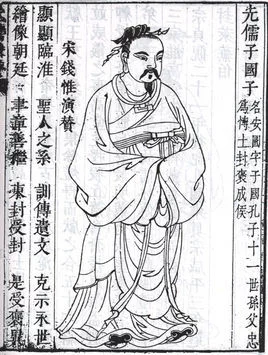 先儒子國子
名安國字子國孔子十一世孫父忠
為博士封褒成侯
宋錢惟演贊
顯顯臨淮 聖人之系 訓傳遺文 克示永世
繪像朝廷 聿章善繼 東封受封 是受褒